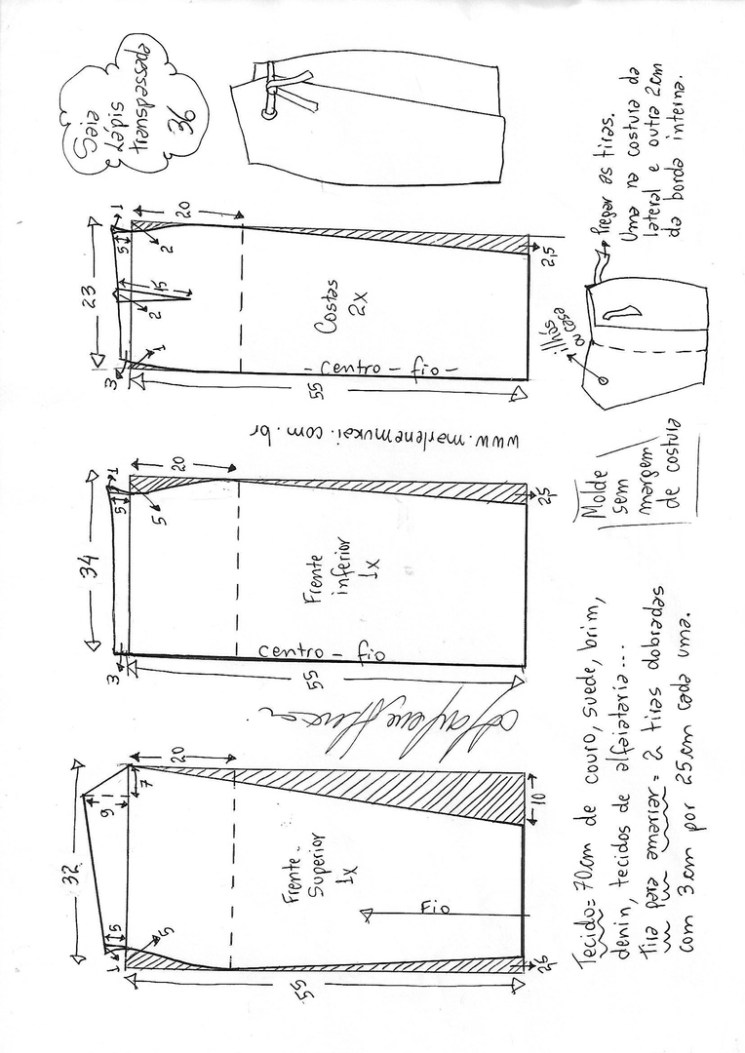 Saia
Lápis
transpassada
36
23
1
5
2
20
15
2
1
3
Costas
2x
- centro - fio -
55
2,5
Pregar as tiras.
Uma na costura da
lateral e outra 2cm
da borda interna.
ilhós
ou case
www.marlenemukai.com.br
34
1
5
5
20
3
Frente
inferior
1x
centro - fio
55
2,5
Molde
sem
margem
de costura
32
9
7
20
5
5
1
Frente-
Superior
1x
Fio
10
55
2,5
Tecido= 70cm de couro, suede, brim,
denin, tecidos de alfaiataria...
tira para amarrar = 2 tiras dobradas
com 3cm por 25cm cada uma.